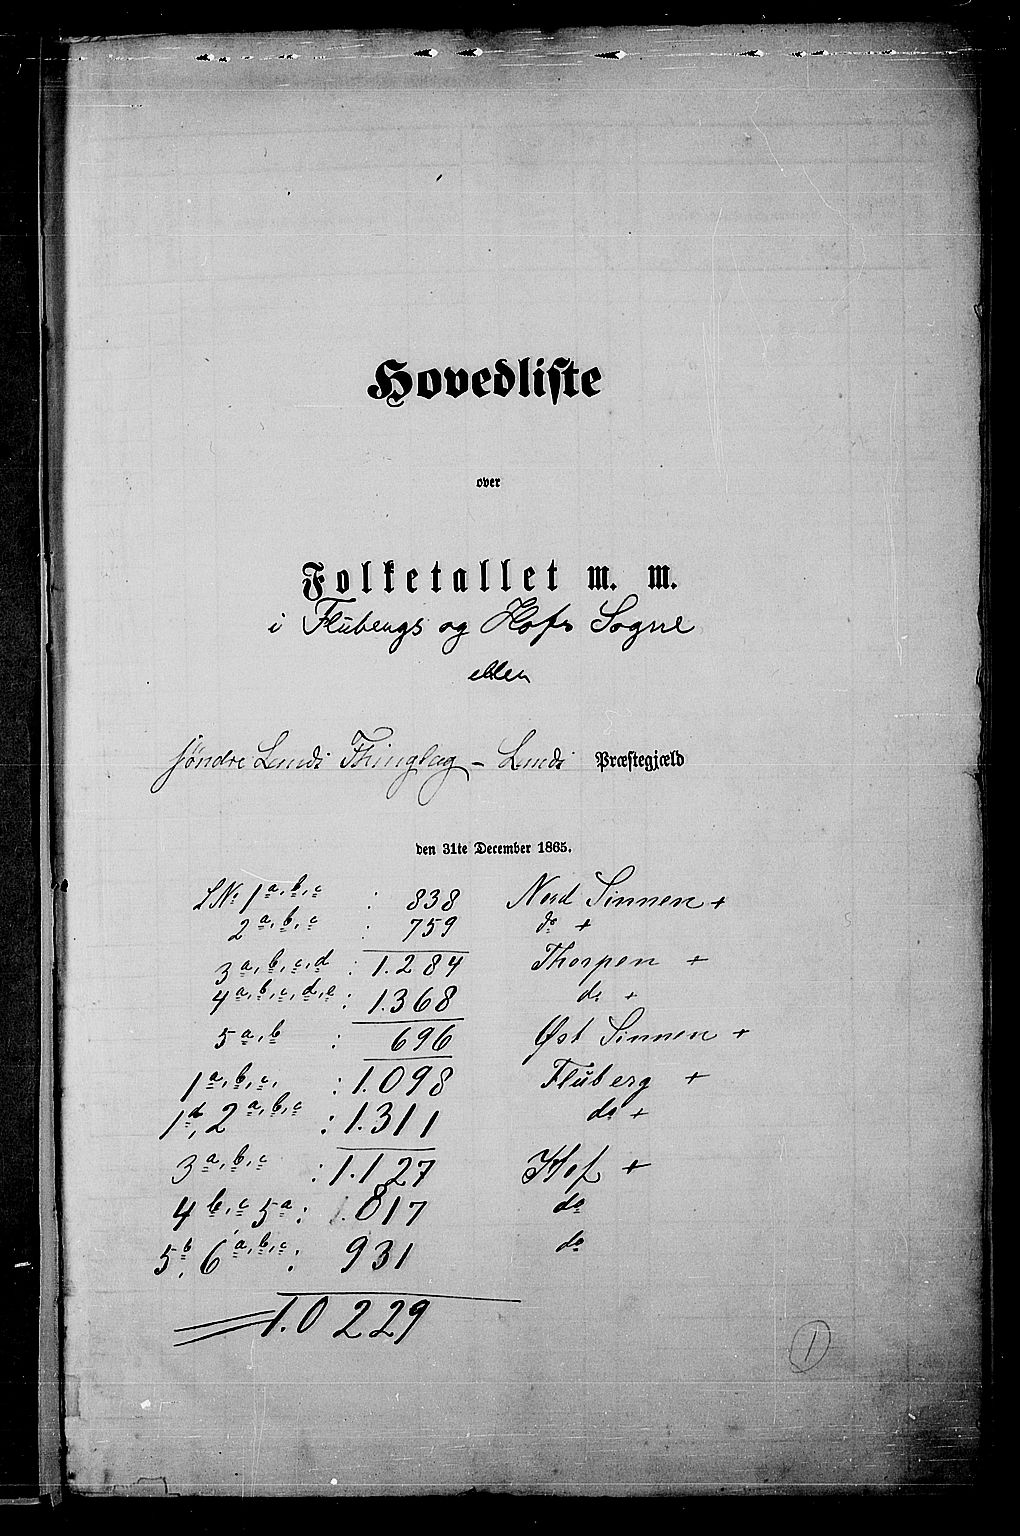 Hovedliste
over
Folketallet m. m.
i Flubergs og Hofs Sogne
eller
søndre Lands Thinglag - Lands Præstegjæld
den 31te December 1865.
LNo 1 a, b, c : 838 Nord Sinnen +
2 a, b, c : 759 do +
3 a, b, c, d : 1.284 Thorpen +
4 a, b, c, d, e : 1.368 do +
5 a, b : 696 Øst Sinnen +
1 a, b, c, : 1.098 Fluberg +
1 d, 2 a, b, c : 1.311 do +
3 a, b, c : 1.127 Hof +
4 b, c 5 a : 817 do
5 b, 6 a, b, c : 931 do
10.229
1